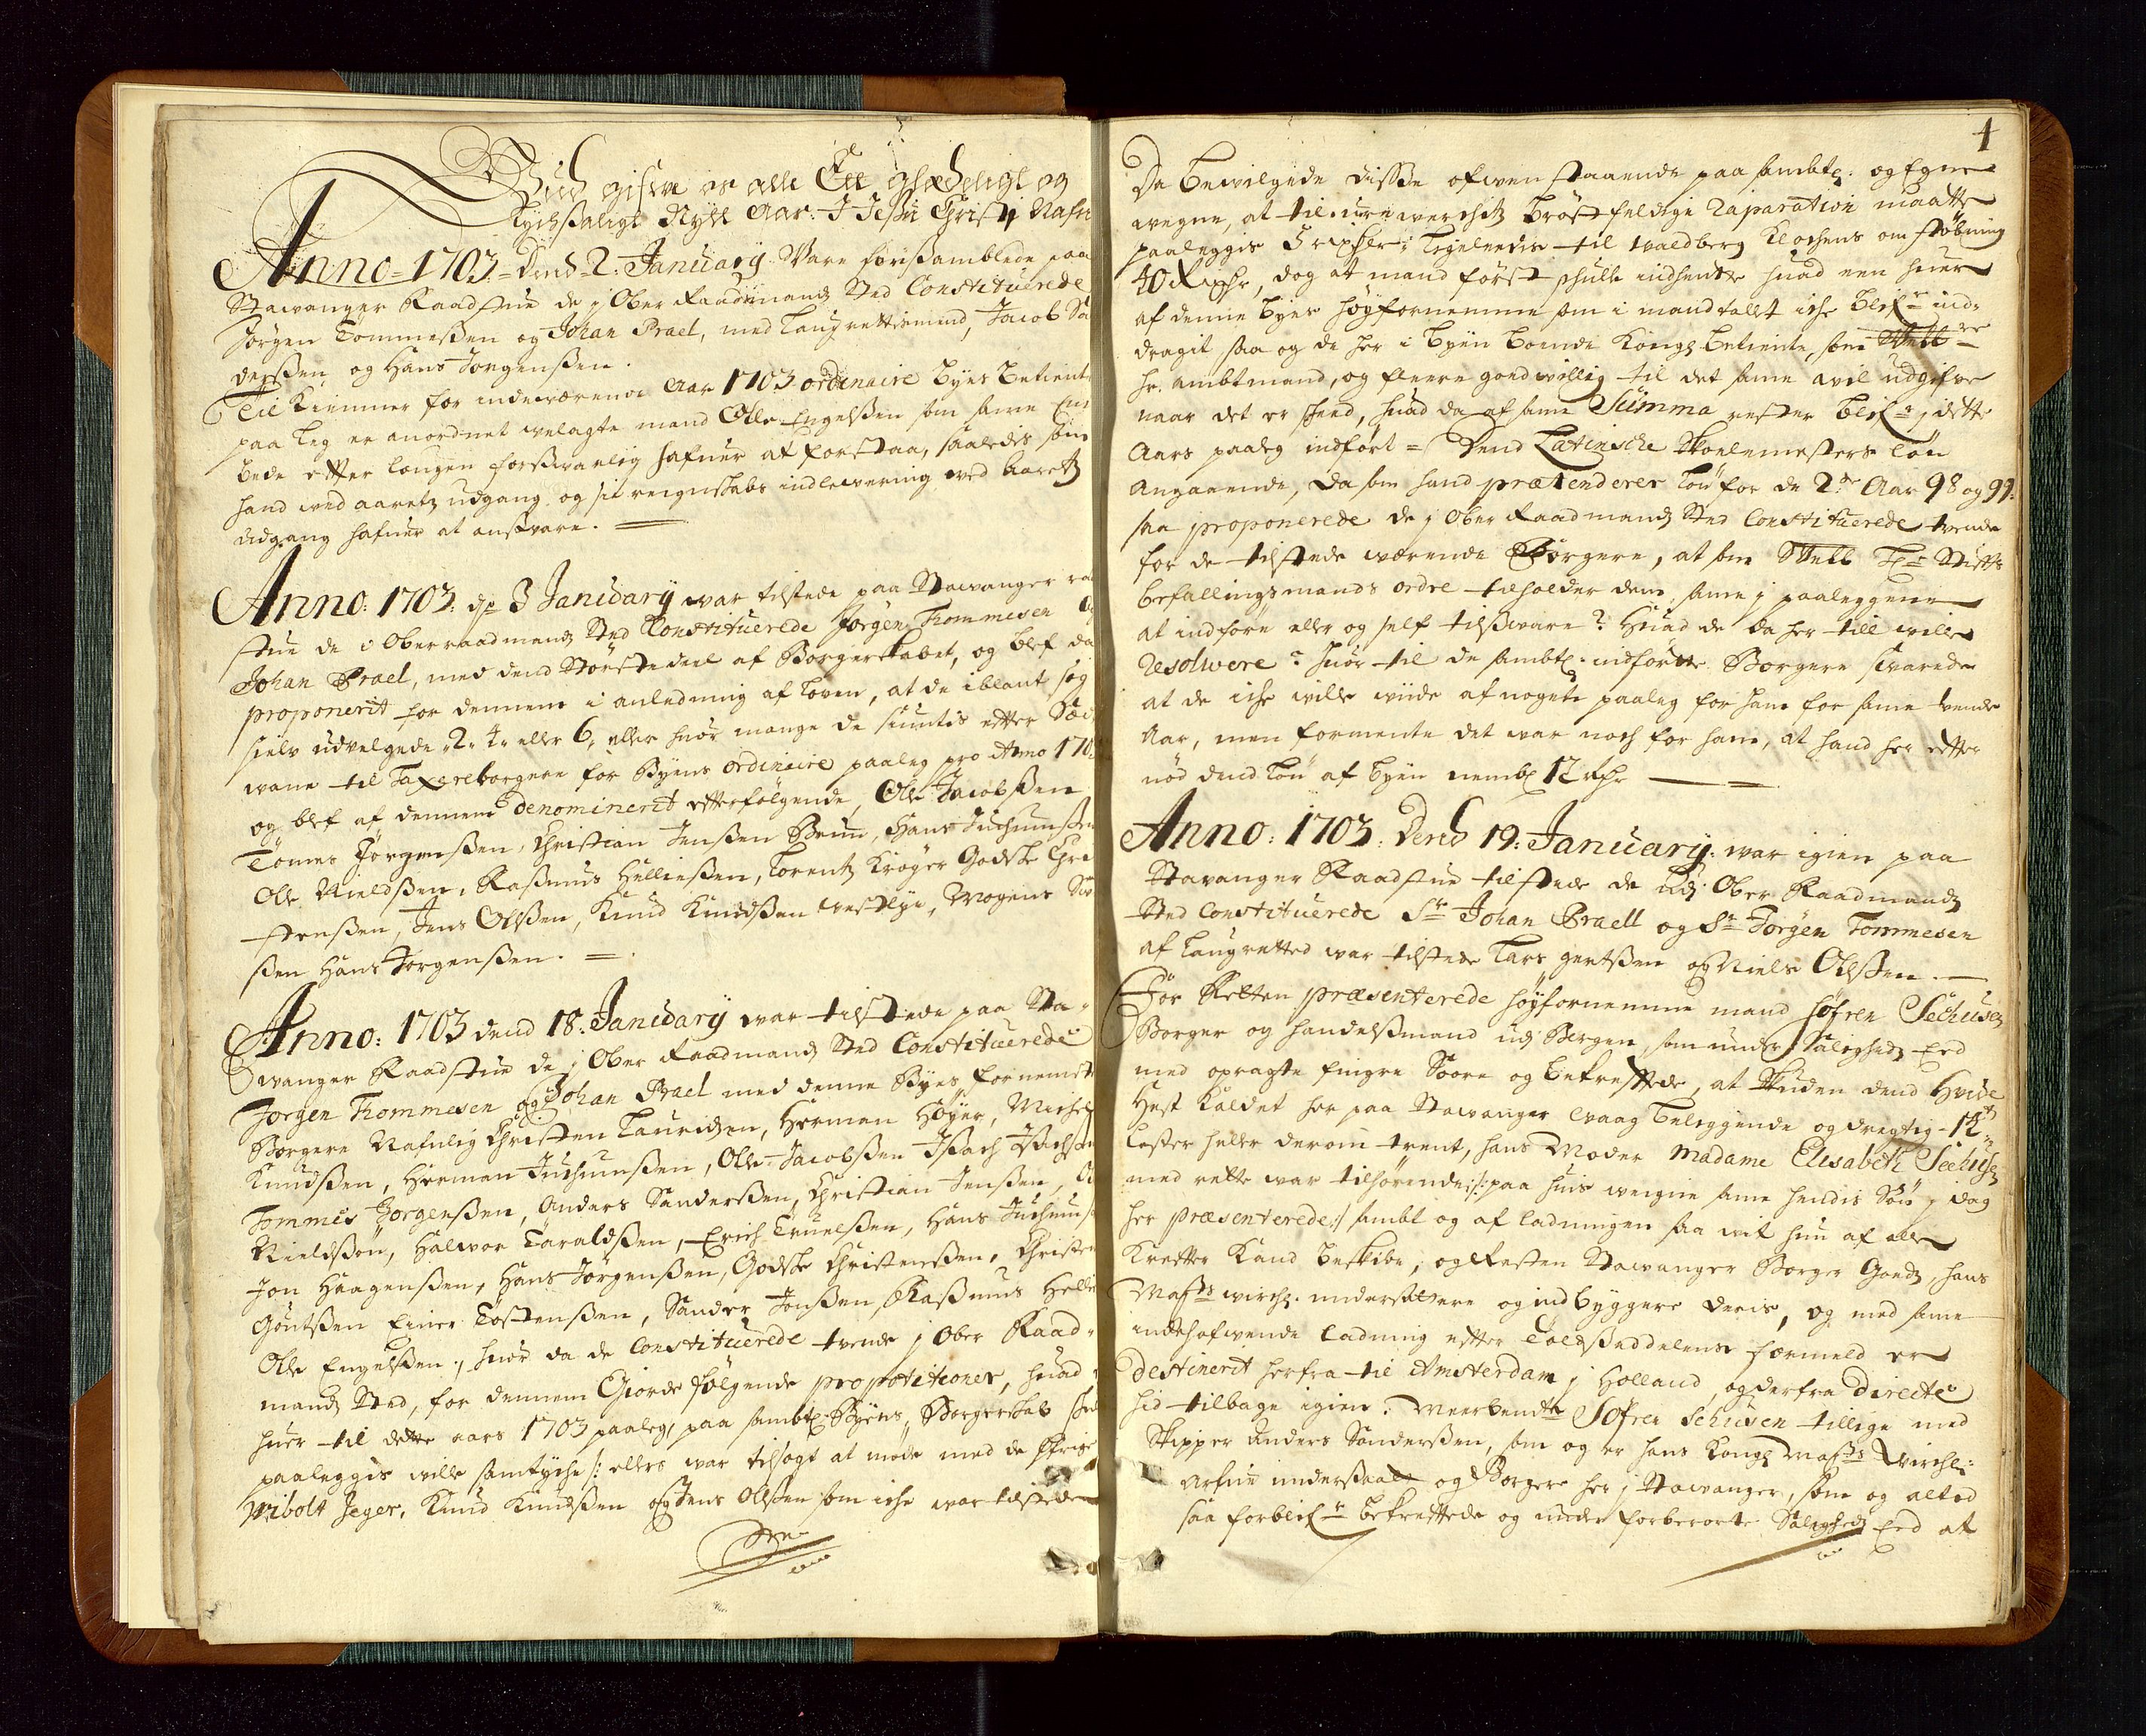 Gud gifwe os alle Ett glædeligt og
Lychsaligt Nytt Aar: I Jesu Christi Nafn
Anno = 1703 = Dend 2: January Vare forsamblede paa
Stawanger Raadstue de j Ober Raadmands Sted Constituerede
Jørgen Tommesen og Johan Prael, med Laugrettismend, Jacob
derssen og Hans Jørgenssen.
Til Kiemner for indeværende Aar 1703 ordinaire Byes betient
paa Leg er anordnet velagte mand Olle Engelssen som same
bede efter Lougen forsvarlig hafuer at forestaa, saaledis som
hand ved aaretz udgang og sit reignskabs indlevering ved Aaretz
udgang hafuer at ansvare.
Anno: 1703: dn 3 Janüary war tilstede paa Stawanger raa
stue de i Oberraadmands Sted Constituerede Jørgen Thommesen og
Johan Prael, med dend Størstedeel af Borgerskabet, og blef da
proponerit for dennem i anledning af Loven, at de iblant sig
sielv udvelgede 2: 4: eller 6, eller huor mange de siuntis efter Sæd
wane til Taxereborgere for Byens ordinaire paaleg pro Anno 170
og blef af dennem denominerit efterfølgende, Olle Jacobssen
Tømes Jørgenssen, Christian Jenssen Bruun, Hans Juchumssen
Olle Nieldssen, Rasmus Helliessen, Lorentz Krøger Godske Chri
stenssen, Jens Olssen, Knud Knudssen westlye, Mogens
ssen Hans Jørgenssen.
Anno: 1703 dend 18: Janüary war tilstede paa Sta-
wanger Raadstue de j Ober Raadmands Sted Constituerede
Jørgen Thommesen og Johan Prael med denne Byes fornemste
Borgere Nafnlig Christen Lauridsen, Herman Höyer, Michel
Knudssen, Herman Juchumssen, Olle Jacobssen Isach Isachsen
Tommes Jørgenssen, Anders Sanderssen, Christian Jenssen, Ol
Nieldssøn, Halwor Taraldssen, Erich Truelssen, Hans Juchums
Jon Haagenssen, Hans Jørgenssen, Godske Christenssen, Christen
Gøutssen Einer Tostenssen, Sander Jonssen, Rasmus Helli
Olle Engelssen, huor da de Constituerede tvende j Ober Raad-
mands Sted, for dennem Giorde følgende propotitioner, huad
huer til dette aars 1703 paaleg, paa sambtl. Byens Borgerskab sk
paaleggis wille samtyche /: ellers war tilsagt at møde med de øfrige
Wibolt Jeger, Knud Knudssen og Jens Olssen som iche war tilstede
1
Da bewilgede disse ofwenstaaende paa sambtl. og Egne
wegne, at til urewerchitz brøstfeldige Raparation maatte
paaleggis 5 rixdlr: ligeledis til waldberg klochens omstøbning
40 Rixdr, dog at mand først schulle indhente huad een huer
af denne byes høyfornemme som i mandtallet iche blifr ind-
dragit saa og de her i byen boende Kongl betiente, som
hr. ambtmand, og fleere goedwillig til det same wil udgifwe
naar det er scheed, huad da af same Summa rester blifr j dette
aars paaleg indført = Dend Latinsche Skolemesters løn
angaaende, da som hand prætenderer løn for de 2de Aar 98 og 99.
saa proponerede de j Ober Raadmands Sted Constituerede tvende
for de tilstede wærende Borgere, at som Hr Stifts
befallingsmands ordre tilholder dem, same j paaleggene
at indføre eller og self tilsvare? Huad de da her till wille
Resolwere? huor til de sambtl. indførte Borgere swarede
at de iche wille wiide af nogen paaleg for ham for same tvende
Aar, men formente det war noch for ham, at hand her efter
nød dend løn af byen nembl 12 rdr
Anno: 1703: Dend 19: January: war igien paa
Stavanger Raadstue tilstede de udj Ober Raadmands
Sted Constituerede Sr Johan Praell og Sr Jørgen Tommesen
af Laugretted war tilstede Lars gertssen og Niels Olssen.
For Retten præsenterede høyfornemme mand Søfren Sechusen
Borger og handelsmand udj Bergen, som under Saligheds Eed
med opragte fingre Soore og bekreftede, at Skuden dend Hvide
Hest kaldet her paa Stawanger waag beliggende og dregtig 12
lester heller derom trent, hans Moder Madame Elisabeth Sechusen
med rette war tilhørende /: paa huis weigne same hendis Søn j dag
her præsenterede :/ sambt og af ladningen saa wit hun af alle
Kreffter kand beskibe, og resten Stawanger Borger Goeds, hans
Maysts wirchl. undersaattere og indbyggere deris, og med same
indehafwende ladning efter Toldseddelens formeld er
destinerit herfra til Amsterdam j Holland, og derfra directe
hid tilbage igien. Meerbendte Søfren Sehusen tillige med
Skipper Anders Sanderssen, som og er hans Kongl Maysts Wirchl:
Arfue undersaatt og Borger her j Stawanger, som og altod
saa forblifr bekreftede og under forberørte Saligheds Eed at